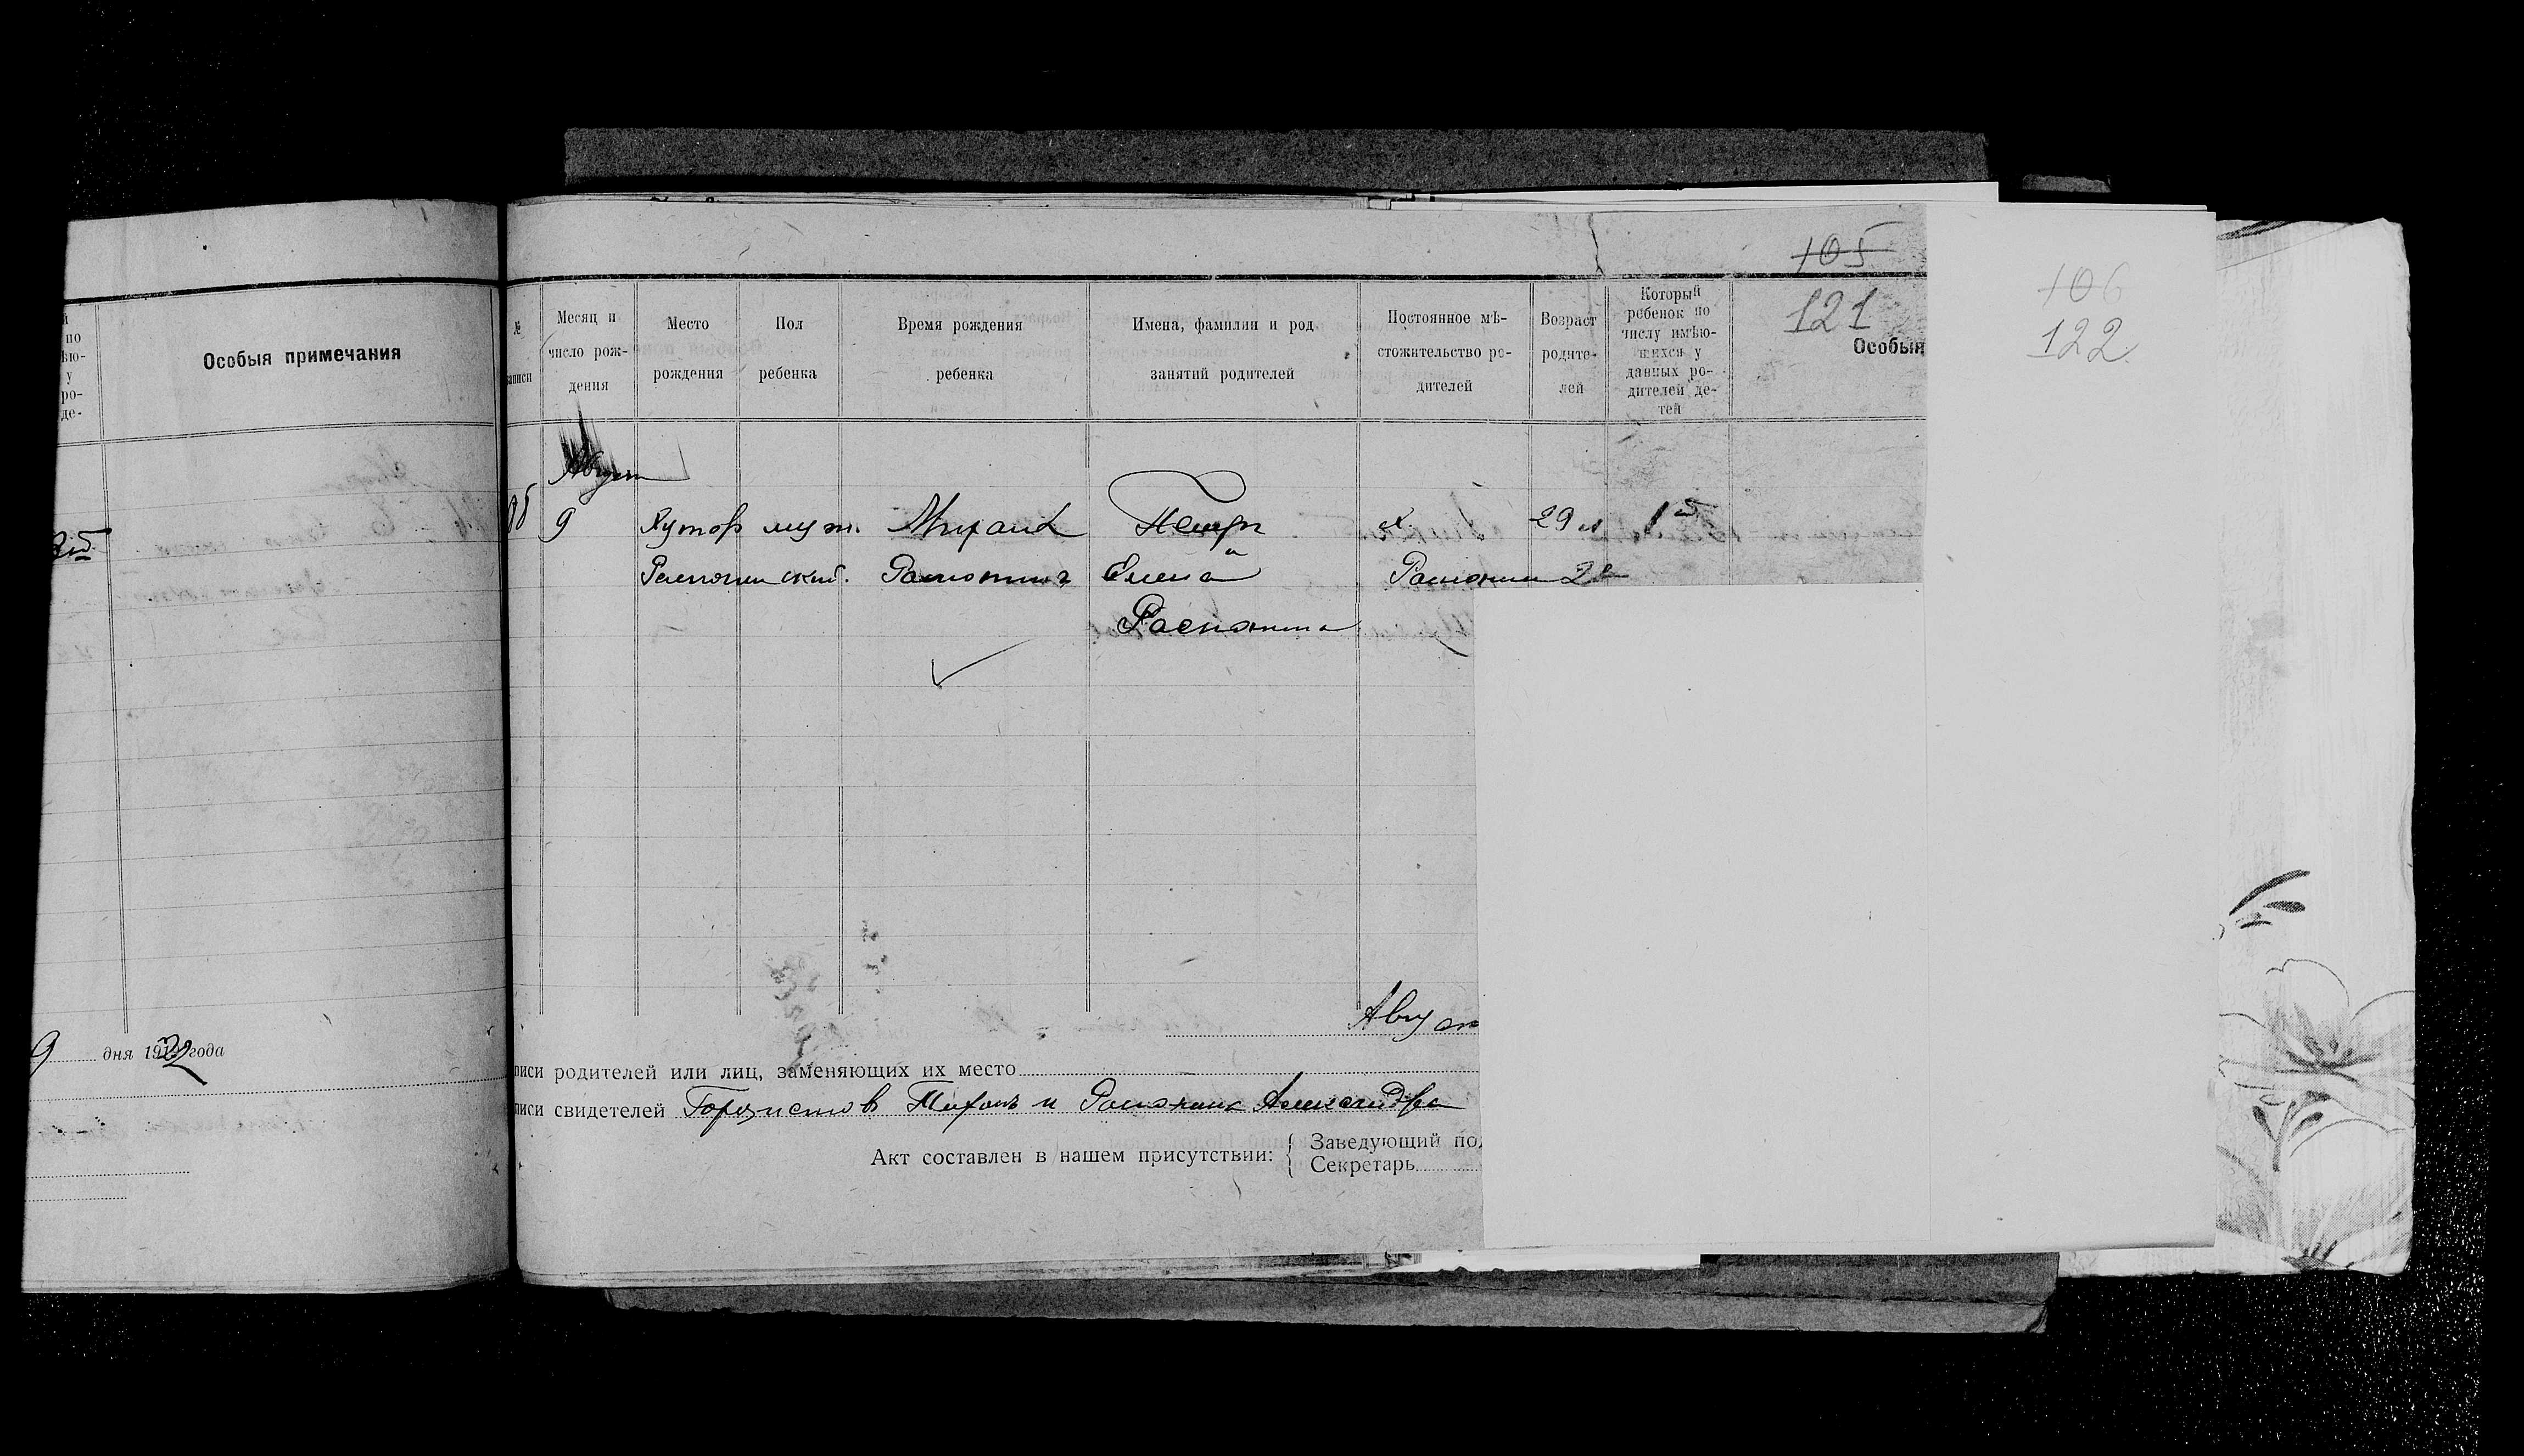 по
ѣю-
у
ро-
де-
Особыя примечания
9 дня 1922 года
105
121
106
122
№
записи
Месяц и
число рож-
дения
Место
рождения
Пол
ребенка
Время рождения
ребенка
Имена, фамилии и род
занятий родителей
Постоянное мѣ-
стожительство ро-
дителей
Возраст
родите-
лей
Который
ребенок по
числу имѣю-
щихся у
данных ро-
дителей де-
тей
Особыя
Август
9 Хутор муж. Михаил Петр х. 29 л 1й
ский. Елена
Распопина
Август
писи родителей или лиц, заменяющих их место
писи свидетелей Тихон и Александра
Акт составлен в нашем присутствии:
Заведующий по
Секретарь